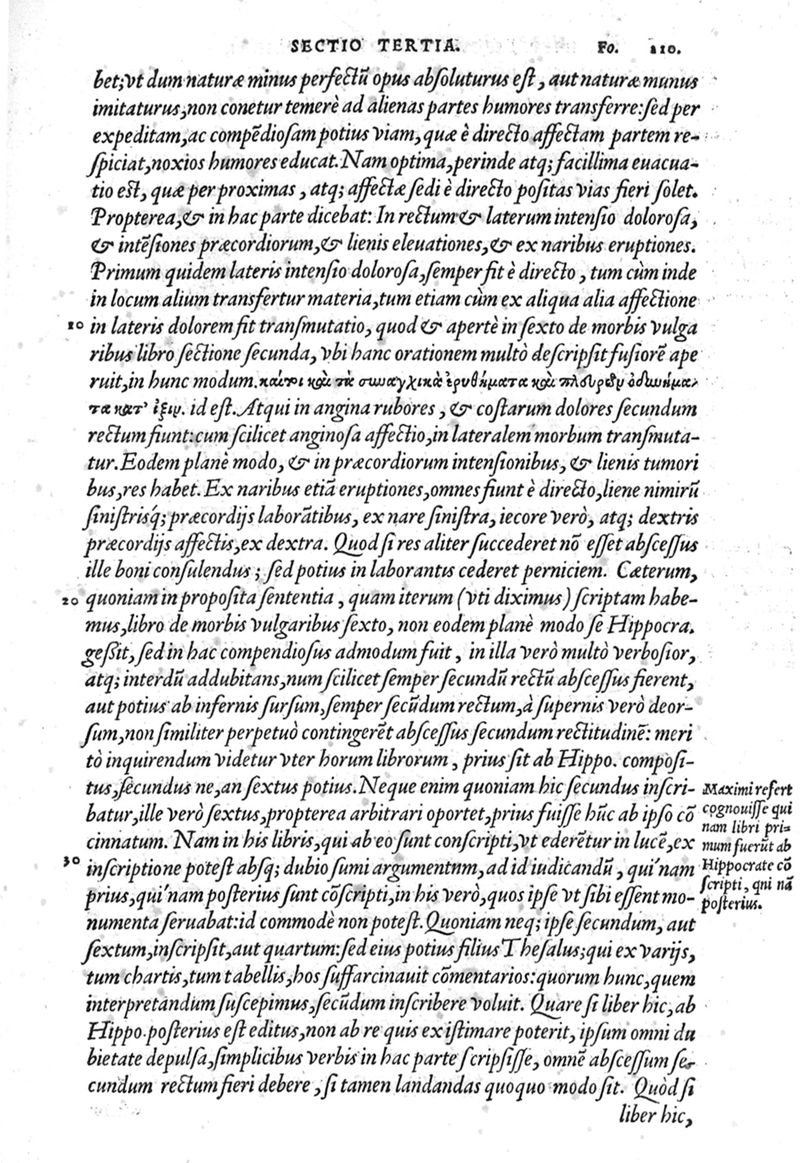 SECTIO TERTIA. Fo. 210.
bet; vt dum naturæ minus perfectũ opus absoluturus est, aut naturæ munus
imitaturus, non conetur temerè ad alienas partes humores transferre: sed per
expeditam, ac compẽdiosam potius viam, quæ è directo affectam partem re-
spiciat, noxios humores educat. Nam optima, perinde atq; facillima euacua-
tio est, quæ per proximas, atq; affectæ sedi è directo positas vias fieri solet.
Propterea, & in hac parte dicebat: In rectum & laterum intensio dolorosa,
& intẽsiones præcordiorum, & lienis eleuationes, & ex naribus eruptiones.
Primum quidem lateris intensio dolorosa, semper fit è directo, tum cùm inde
in locum alium transfertur materia, tum etiam cùm ex aliqua alia affectione
10 in lateris dolorem fit transmutatio, quod & apertè in sexto de morbis vulga
ribus libro sectione secunda, vbi hanc orationem multò descripsit fusiorẽ ape
ruit, in hunc modum. καίτοι καὶ τὰ συναγχικὰ ἐρυθήματα καὶ πλευρέων ὀδυνήμα-
τα κατ' ἴξιν. id est. Atqui in angina rubores, & costarum dolores secundum
rectum fiunt: cum scilicet anginosa affectio, in lateralem morbum transmuta-
tur. Eodem planè modo, & in præcordiorum intensionibus, & lienis tumori
bus, res habet. Ex naribus etiã eruptiones, omnes fiunt è directo, liene nimirũ
sinistrisq́; præcordijs laborãtibus, ex nare sinistra, iecore verò, atq; dextris
præcordijs affectis, ex dextra. Quod si res aliter succederet nõ esset abscessus
ille boni consulendus; sed potius in laborantis cederet perniciem. Cæterum,
20 quoniam in proposita sententia, quam iterum (vti diximus) scriptam habe-
mus, libro de morbis vulgaribus sexto, non eodem planè modo se Hippocra.
gessit, sed in hac compendiosus admodum fuit, in illa verò multò verbosior,
atq; interdũ addubitans, num scilicet semper secundũ rectũ abscessus fierent,
aut potius ab infernis sursum, semper secũdum rectum, à supernis verò deor-
sum, non similiter perpetuò contingerẽt abscessus secundum rectitudinẽ: meri
tò inquirendum videtur vter horum librorum, prius sit ab Hippo. composi-
tus, secundus ne, an sextus potius. Neque enim quoniam hic secundus inscri-
batur, ille verò sextus, propterea arbitrari oportet, prius fuisse hũc ab ipso cõ
cinnatum. Nam in his libris, qui ab eo sunt conscripti, vt ederẽtur in lucẽ, ex
30 inscriptione potest absq; dubio sumi argumentnm, ad id iudicandũ, qui'nam
prius, qui'nam posterius sunt cõscripti, in his verò, quos ipse vt sibi essent mo-
numenta seruabat: id commodè non potest. Quoniam neq; ipse secundum, aut
sextum, inscripsit, aut quartum: sed eius potius filius Thesalus; qui ex varijs,
tum chartis, tum tabellis, hos suffarcinauit cõmentarios: quorum hunc, quem
interpretandum suscepimus, secũdum inscribere voluit. Quare si liber hic, ab
Hippo. posterius est editus, non ab re quis existimare poterit, ipsum omni du
bietate depulsa, simplicibus verbis in hac parte scripsisse, omnẽ abscessum se-
cundum rectum fieri debere, si tamen landandas quoquo modo sit. Quòd si
liber hic,
Maximi refert
cognouisse qui
nam libri pri-
mum fuerũt ab
Hippocrate cõ
scripti, qni nã
posterius.